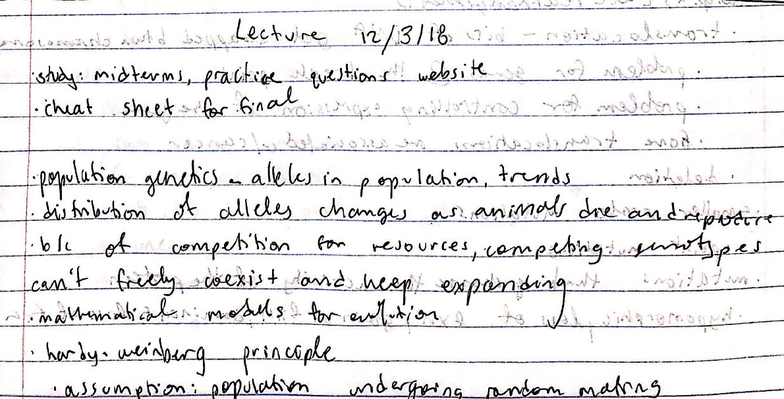 Lecture 12/3/18
· study: midterms, practice questions website
· cheat sheet for final
· population genetics - alleles in population, trends
· distribution of alleles changes as animals die and reproduce
· b/c of competition for resources, competing genotypes
can't freely coexist and keep expanding
· mathematical models for evolution
· hardy-weinberg principle
· assumption: population undergoing random mating